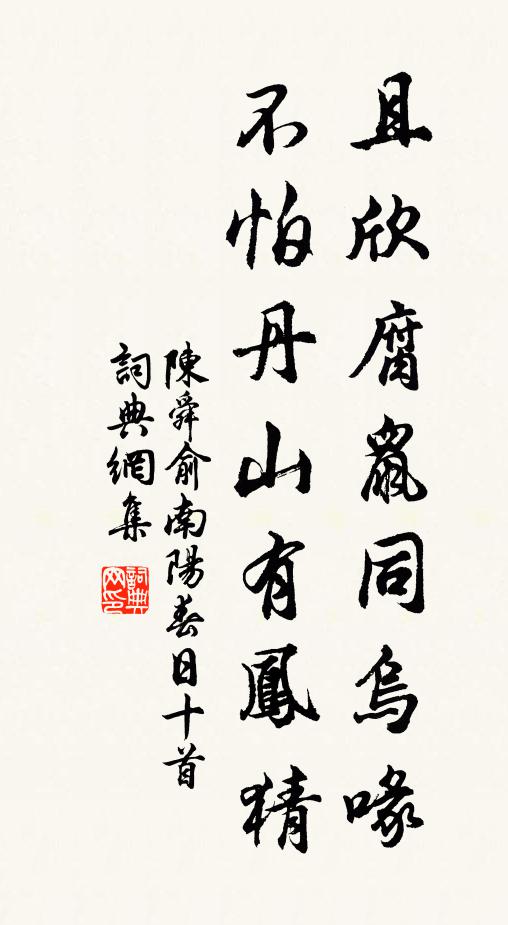 且欣腐鼠同烏喙
不怕丹山有鳳猜
陳舜俞南陽春日十首
詞典網集
詞典
网印